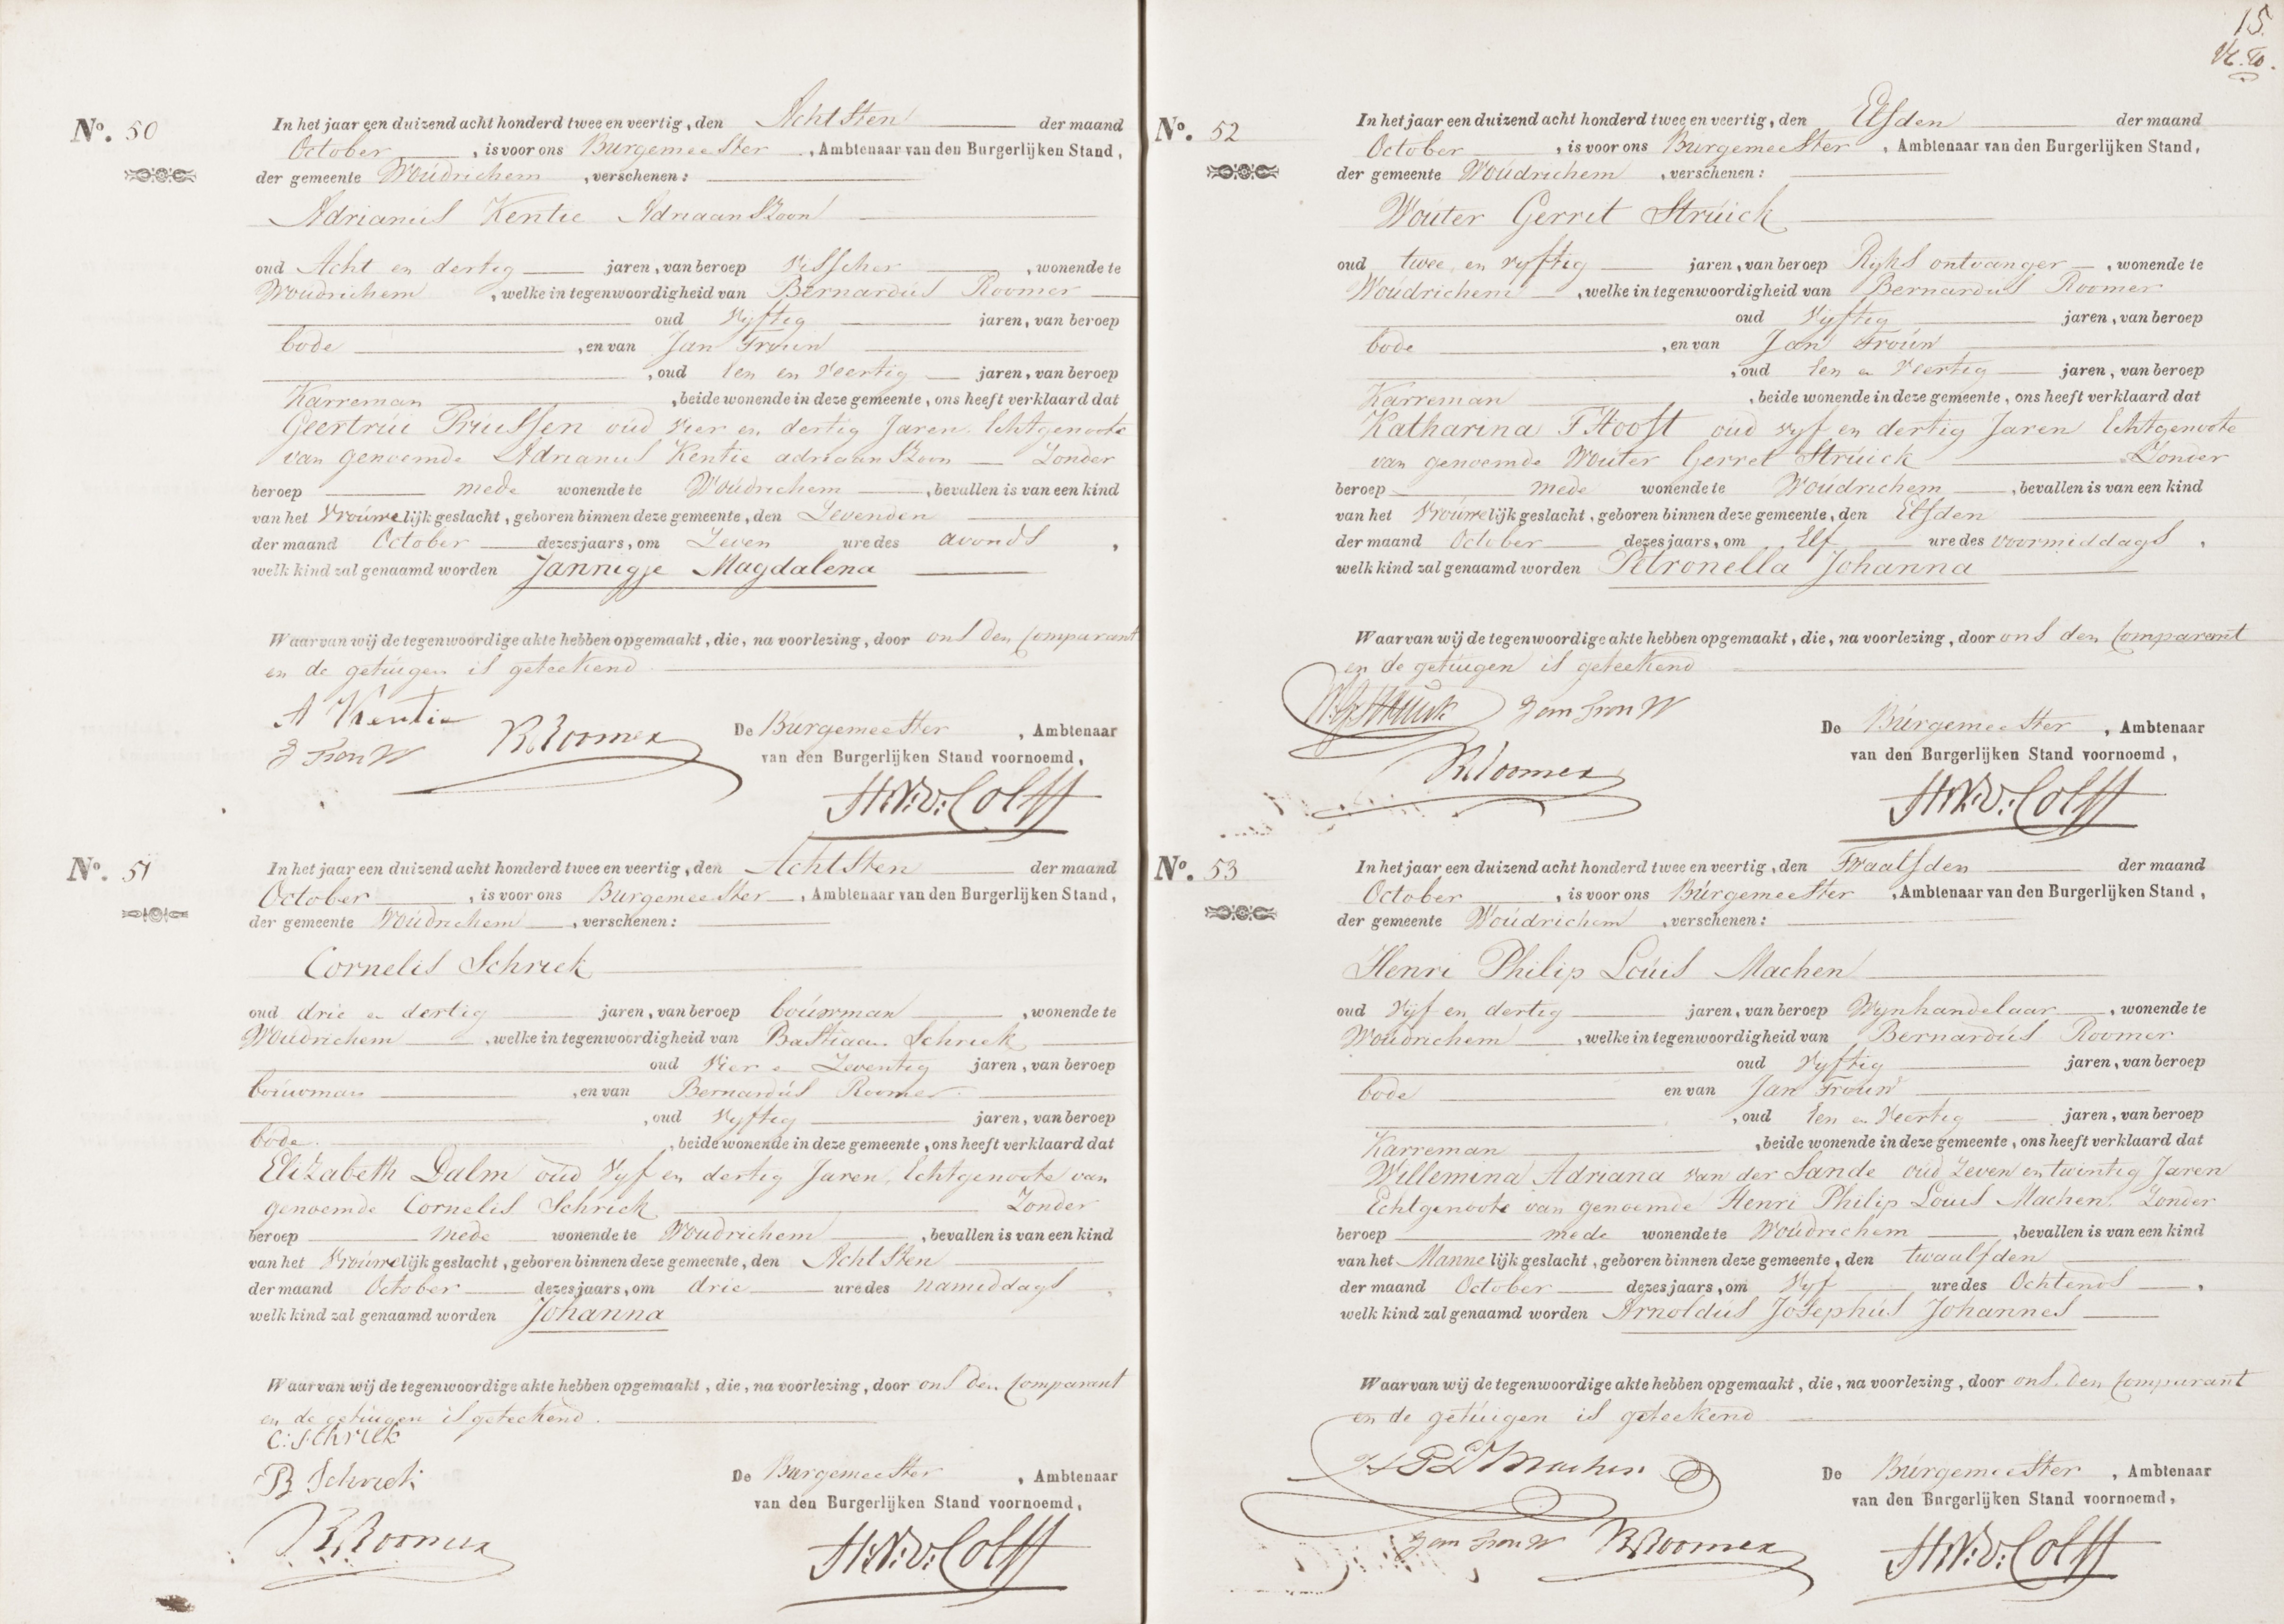 Nº. 50
In het jaar een duizend acht honderd twee en veertig, den Achtsten der maand
October, is voor ons Burgemeester, Ambtenaar van den Burgerlijken Stand,
der gemeente Woúdrichem, verschenen:
Adrianús Kentie Adriaanszoon
oud Acht en dertig jaren, van beroep Visscher, wonende te
Woúdrichem, welke in tegenwoordigheid van Bernardús Roomer
oud Vyftig jaren, van beroep
bode, en van Jan Troúw
, oud Een en Veertig jaren, van beroep
Karreman, beide wonende in deze gemeente, ons heeft verklaard dat
Geertrúi Prúissen oúd Vier en dertig Jaren Echtgenoote
van genoemde Adrianus Kentie adriaanszoon Zonder
beroep mede wonende te Woúdrichem, bevallen is van een kind
van het Vroúwelijk geslacht, geboren binnen deze gemeente, den Zevenden
der maand October dezes jaars, om Zeven ure des avonds,
welk kind zal genaamd worden Jannigje Magdalena
Waarvan wij de tegenwoordige akte hebben opgemaakt, die, na voorlezing, door ons den Comparant
en de getúigen is geteekend
A Kentie
J Trouw
B Roomer
De Búrgemeester, Ambtenaar
van den Burgerlijken Stand voornoemd,
H:N:v: Colff
Nº. 51
In het jaar een duizend acht honderd twee en veertig, den Achtsten der maand
October, is voor ons Burgemeester, Ambtenaar van den Burgerlijken Stand,
der gemeente Woúdrichem, verschenen:
Cornelis Schriek
oud drie en dertig jaren, van beroep boúwman, wonende te
Woudrichem, welke in tegenwoordigheid van Bastiaan Schriek
oud Vier en Zeventig jaren, van beroep
boúwman, en van Bernardús Roomer
, oud Vyftig jaren, van beroep
bode, beide wonende in deze gemeente, ons heeft verklaard dat
Elizabeth Dalm oúd Vyf en dertig Jaren, Echtgenoote van
genoemde Cornelis Schriek Zonder
beroep mede wonende te Woudrichem, bevallen is van een kind
van het Vroúwelijk geslacht, geboren binnen deze gemeente, den Achtsten
der maand October dezes jaars, om drie ure des namiddags,
welk kind zal genaamd worden Johanna
Waarvan wij de tegenwoordige akte hebben opgemaakt, die, na voorlezing, door ons den Comparant
en de getúigen is geteekend.
C: Schriek
B Schriek
B Roomer
De Burgemeester, Ambtenaar
van den Burgerlijken Stand voornoemd,
H:N:v: Colff
15.
Nº. 52
In het jaar een duizend acht honderd twee en veertig, den Elfden der maand
October, is voor ons Burgemeester, Ambtenaar van den Burgerlijken Stand,
der gemeente Woúdrichem, verschenen:
Woúter Gerrit Strúick
oud twee en vyftig jaren, van beroep Ryks ontvanger, wonende te
Woúdrichem, welke in tegenwoordigheid van Bernardus Roomer
oud Vyftig jaren, van beroep
bode, en van Jan Troúw
, oud Een en Veertig jaren, van beroep
Karreman, beide wonende in deze gemeente, ons heeft verklaard dat
Katharina T'Hooft oúd vyf en dertig Jaren Echtgenoote
van genoemde Woúter Gerret Strúick Zonder
beroep mede wonende te Woúdrichem, bevallen is van een kind
van het Vroúwelijk geslacht, geboren binnen deze gemeente, den Elfden
der maand October dezes jaars, om Elf ure des voormiddags,
welk kind zal genaamd worden Petronella Johanna
Waarvan wij de tegenwoordige akte hebben opgemaakt, die, na voorlezing, door ons den Comparant
en de getúigen is geteekend
W.G. Struick
Jan Trouw
B Roomer
De Búrgemeester, Ambtenaar
van den Burgerlijken Stand voornoemd,
H:N:v: Colff
Nº. 53
In het jaar een duizend acht honderd twee en veertig, den Twaalfden der maand
October, is voor ons Búrgemeester, Ambtenaar van den Burgerlijken Stand,
der gemeente Woúdrichem, verschenen:
Henri Philip Loúis Machen
oud Vyf en dertig jaren, van beroep Wynhandelaar, wonende te
Woudrichem, welke in tegenwoordigheid van Bernardús Roomer
oud Vyftig jaren, van beroep
bode en van Jan Troúw
, oud Een en Veertig jaren, van beroep
Karreman, beide wonende in deze gemeente, ons heeft verklaard dat
Willemina Adriana van der Sande oúd Zeven en twintig Jaren
Echtgenoote van genoemde Henri Philip Louis Machen. Zonder
beroep mede wonende te Woúdrichem, bevallen is van een kind
van het Mannelijk geslacht, geboren binnen deze gemeente, den twaalfden
der maand October dezes jaars, om Vyf ure des Ochtends,
welk kind zal genaamd worden Arnoldús Josephús Johannes
Waarvan wij de tegenwoordige akte hebben opgemaakt, die, na voorlezing, door ons den Comparant
en de getúigen is geteekend
H P L Machen
Jan Trouw
B Roomer
De Búrgemeester, Ambtenaar
van den Burgerlijken Stand voornoemd,
H:N:v: Colff